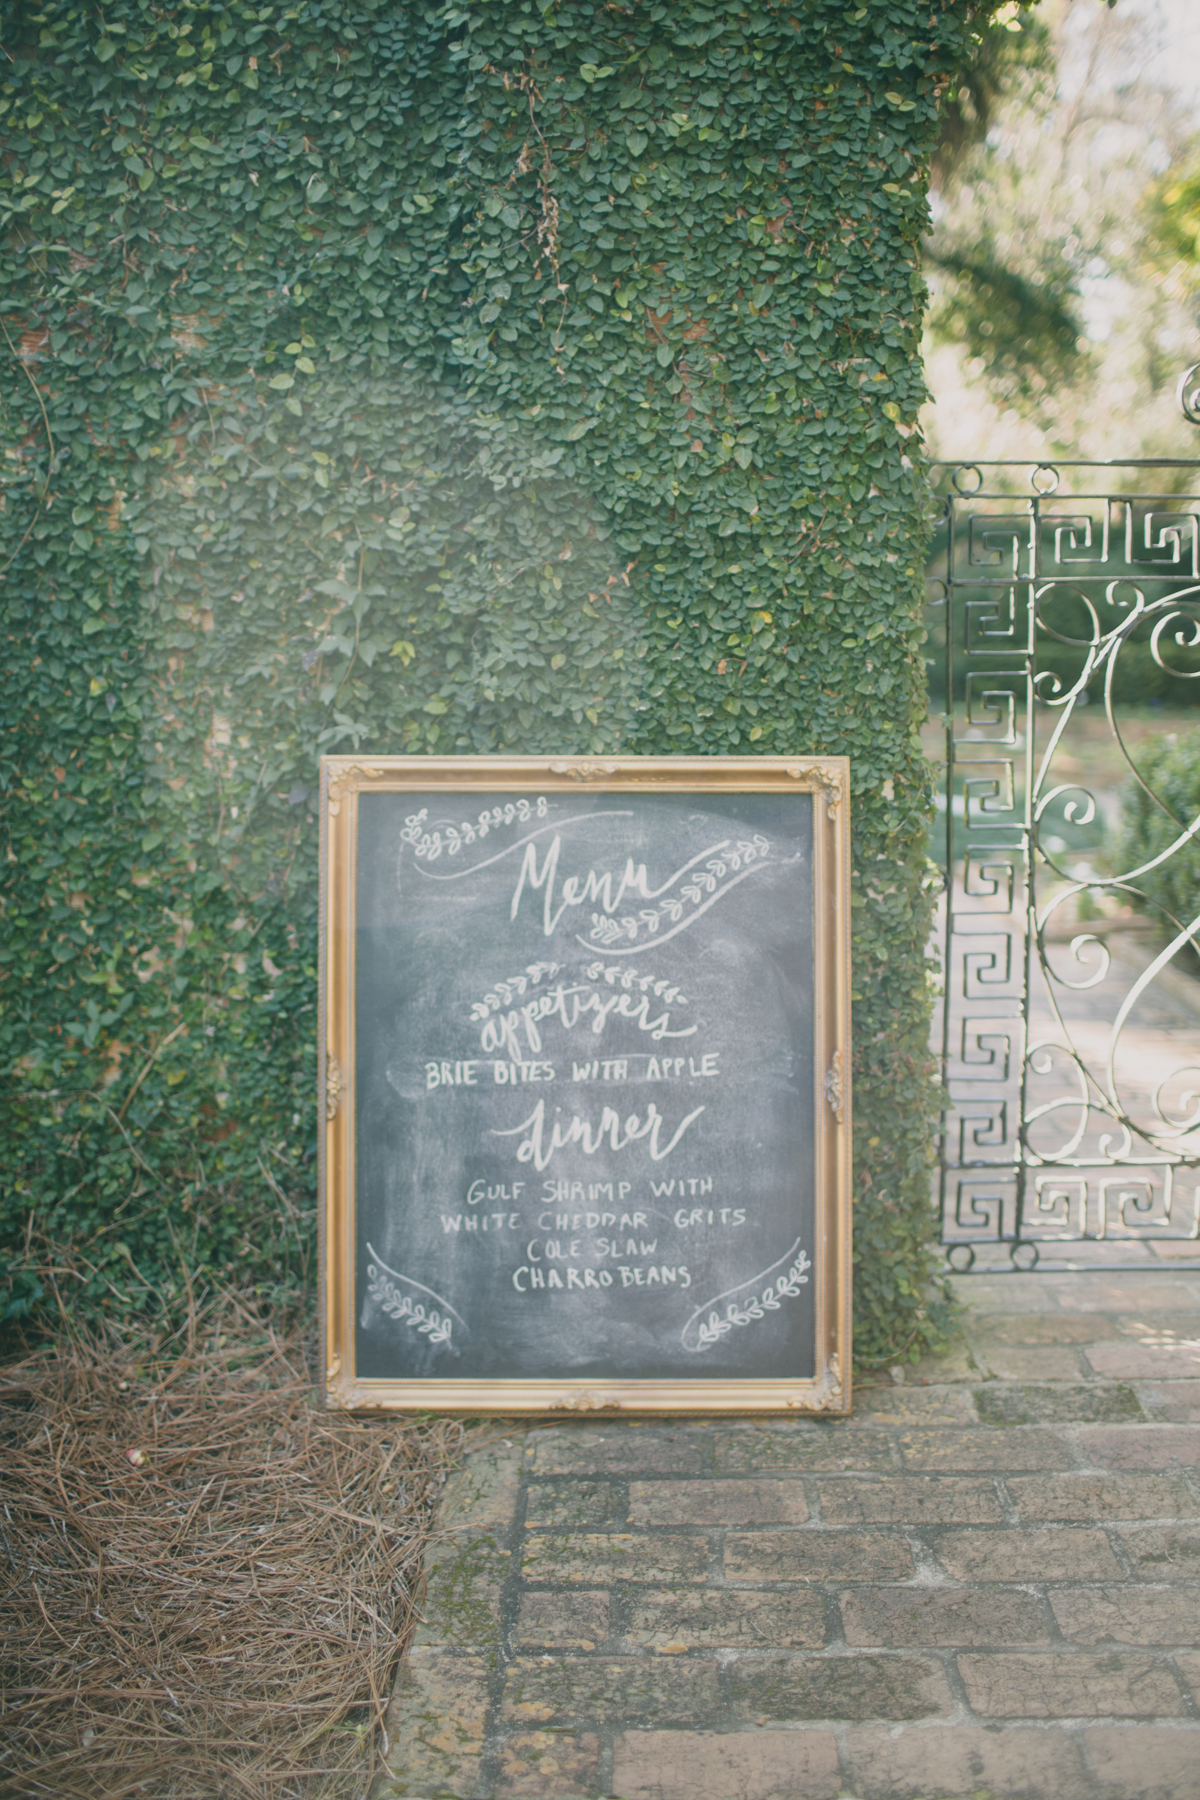 Menu
appetizers
BRIE BITES WITH APPLE
dinner
GULF SHRIMP WITH
WHITE CHEDDAR GRITS
COLE SLAW
CHARRO BEANS